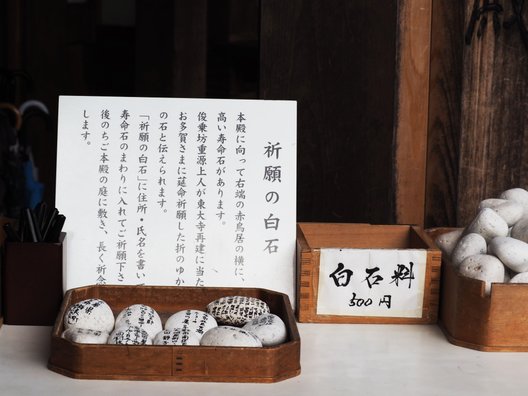 祈願の白石
本殿に向って右端の赤鳥居の横に、
高い寿命石があります。
俊乗坊重源上人が東大寺再建に当た
お多賀さまに延命祈願した折のゆか
の石と伝えられます。
「祈願の白石」に住所・氏名を書い
寿命石のまわりに入れてご祈願下さ
後のちご本殿の庭に敷き、長く祈念
します。
白石料
500円